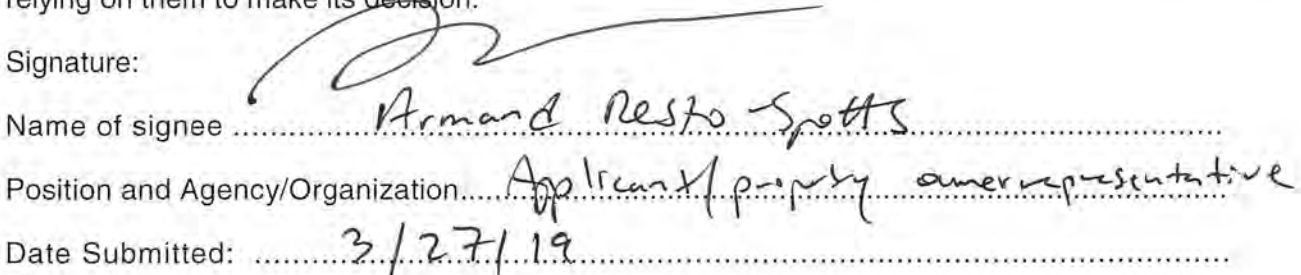 relying on them to make its decision.
Signature:
Name of signee ........ Armand Resto-Spotts
Position and Agency/Organization..... Applicant/property owner representative
Date Submitted: ......... 3/27/19